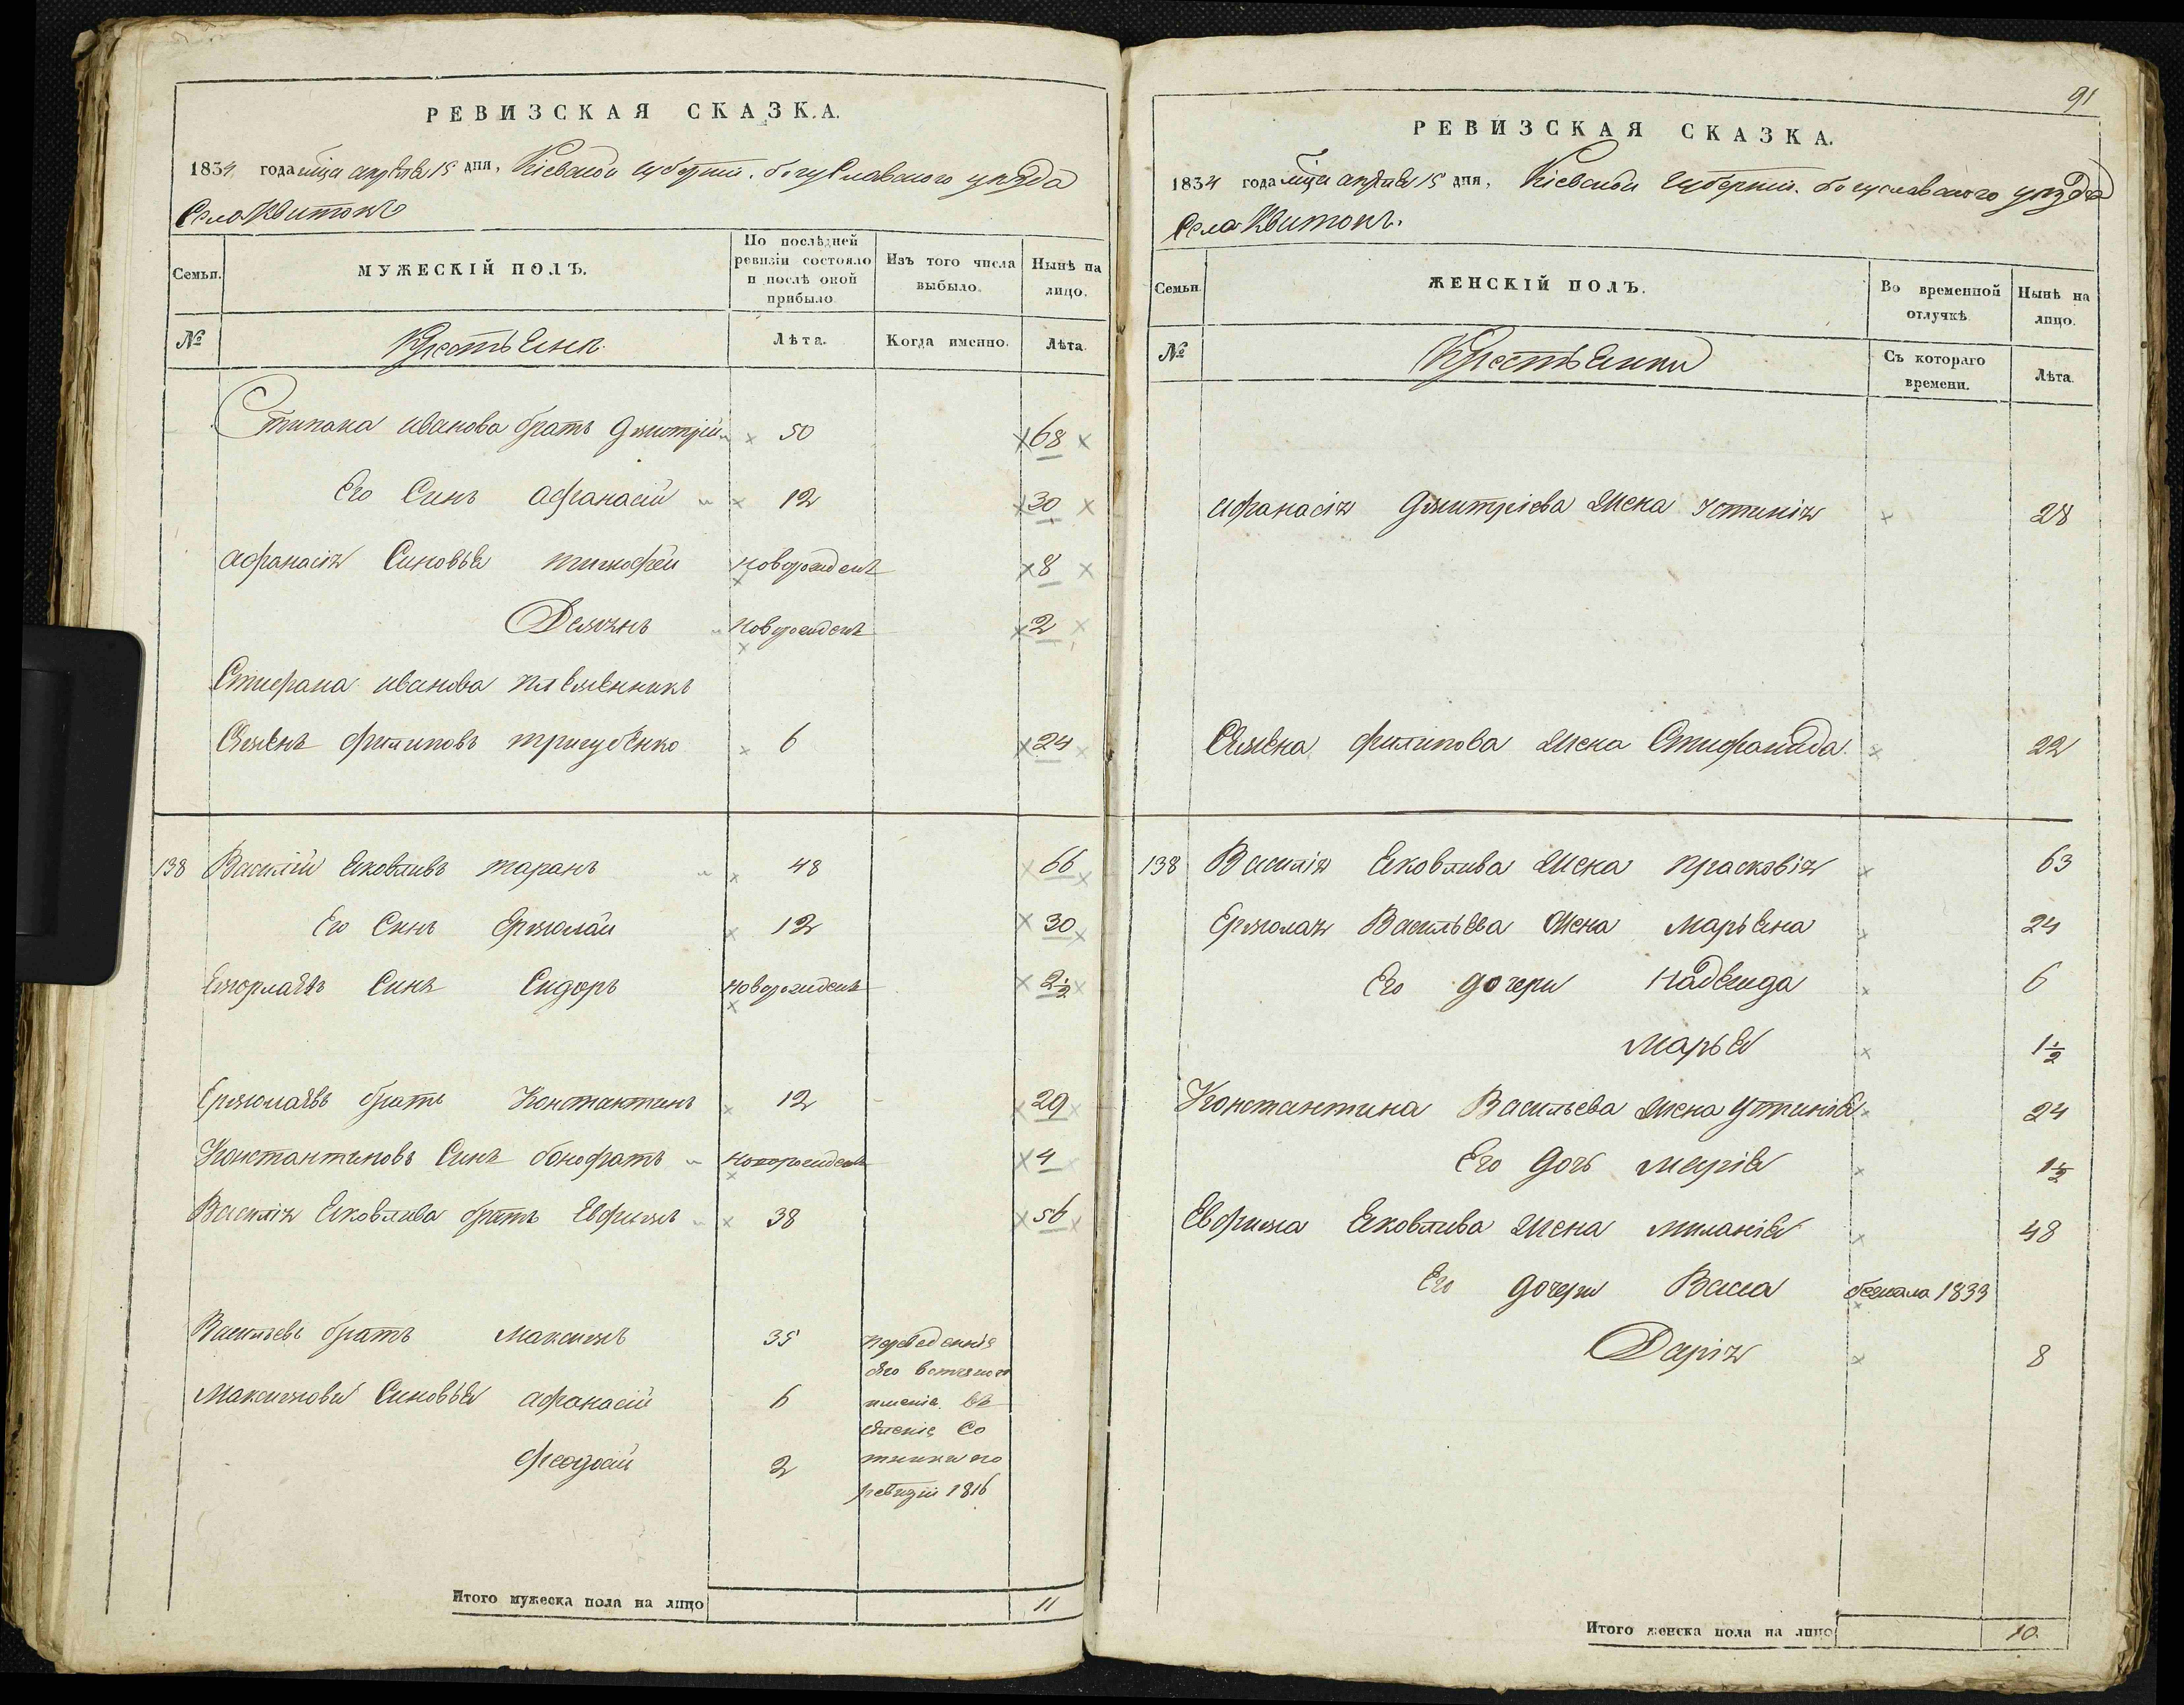 РЕВИЗСКАЯ СКАЗКА.
1834 года мца апреля 15 дня, Кіевской губерніи. богуславского уезда
Села Квитокъ
Семьи.
МУЖЕСКІЙ ПОЛЪ.
По послѣдней ревизіи состояло и послѣ оной прибыло
Изъ того числа выбыло.
Нынѣ на лицо.
№
Крестьяне
Лѣта.
Когда именно.
Лѣта.
Стипана иванова братъ дмитрій 50 68
Его Синъ афанасій 12 30
афанасія Синовья тимофей новорожденъ 8
Демянъ новорожденъ 2
Стифана иванова племенникъ
Семенъ филиповъ тригубенко 6 24
138 Василій яковливъ таранъ 48 66
Его Синъ Ермолай 12 30
Синъ Сидоръ новорожденъ 2 1/2
Ермолаевъ братъ Константинъ 12 29
Константиновъ Синъ новорожденъ 4
Василія яковлива братъ Ефимъ 38 56
Васильевъ братъ Максимъ 35
Максимовы Синовья афанасій 6
феодосій 2
переведенніе
имение въ
селеніе Со
тники по
ревизіи 1816
Итого мужеска пола на лицо 11
91
РЕВИЗСКАЯ СКАЗКА.
1834 года мца апреля 15 дня, Кіевской губерніи. богуславского уезда
Села Квитокъ.
Семьи.
ЖЕНСКІЙ ПОЛЪ.
Во временной отлучкѣ
Нынѣ на лицо.
№
Крестьянки
Съ котораго времени.
Лѣта.
афанасія дмитріева жена устинія 28
Семена филипова жена Стифанида 22
138 Василія яковлива жена прасковія 63
Ермолая Васильева жена Марьяна 24
Его дочери надежда 6
Марья 1 1/2
Константина Васильева жена 24
Его дочь марія 1 1/2
Ефима яковлива жена миланія 48
Его дочери Васа бежала 1833
Дарія 8
Итого женска пола на лицо 10.